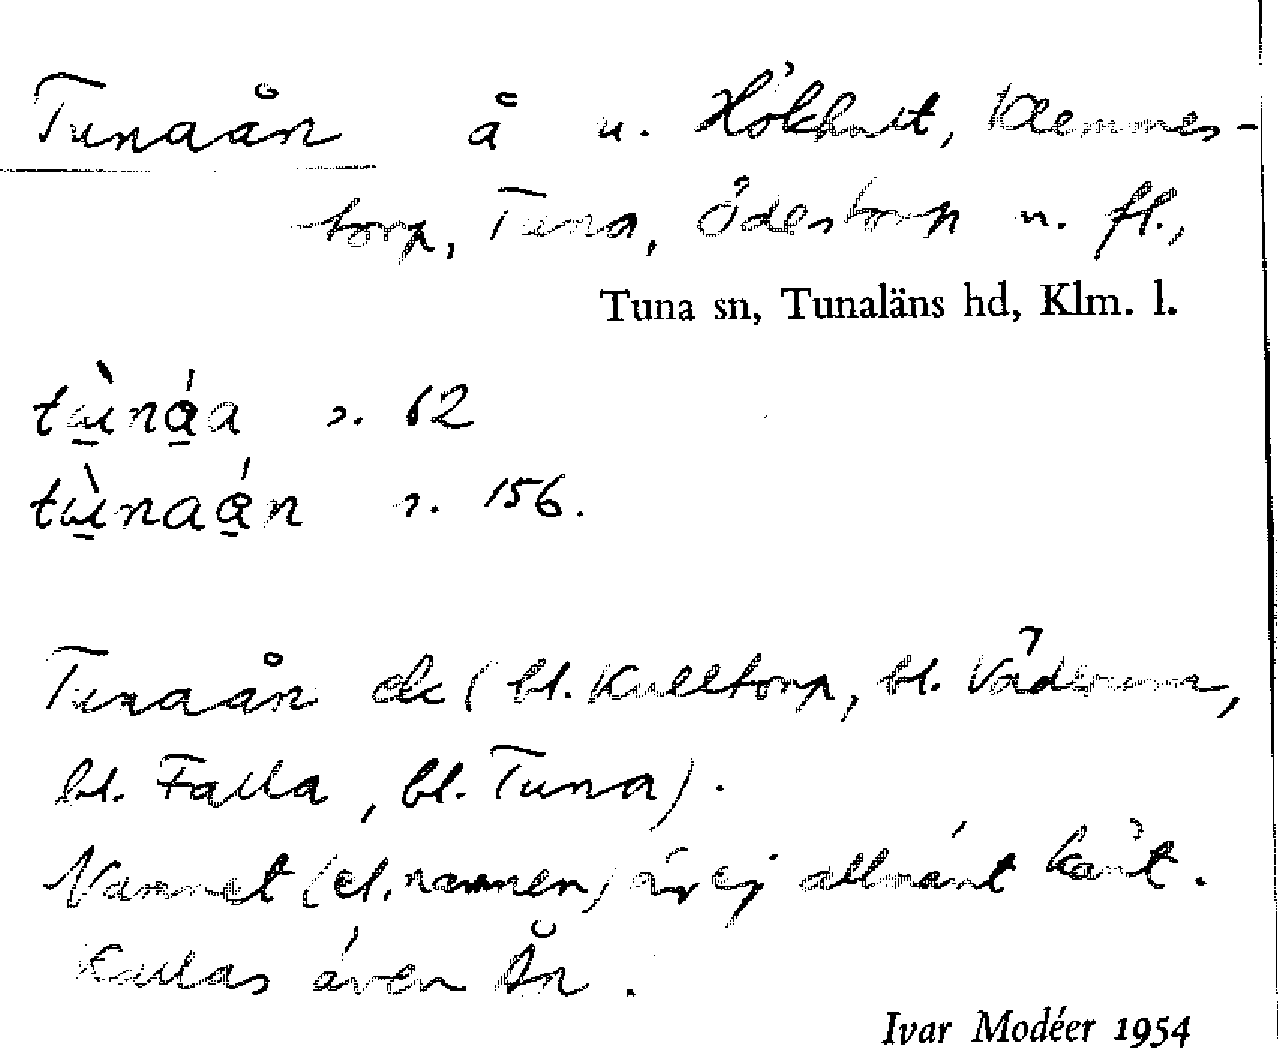 Tunaån å u. Hökhult, Klemmes-
torp, Tuna, Ödestorp u. fl.,
Tuna sn, Tunaläns hd, Klm. l.
tɯ̀náa s. 62
tɯ̀naán s. 156.
Tunaån ek (bl. Kulltorp, bl. Väderum,
bl. Falla, bl. Tuna).
Namnet (el. namnen) är ej allmänt känt.
Kallas även Ån.
Ivar Modéer 1954